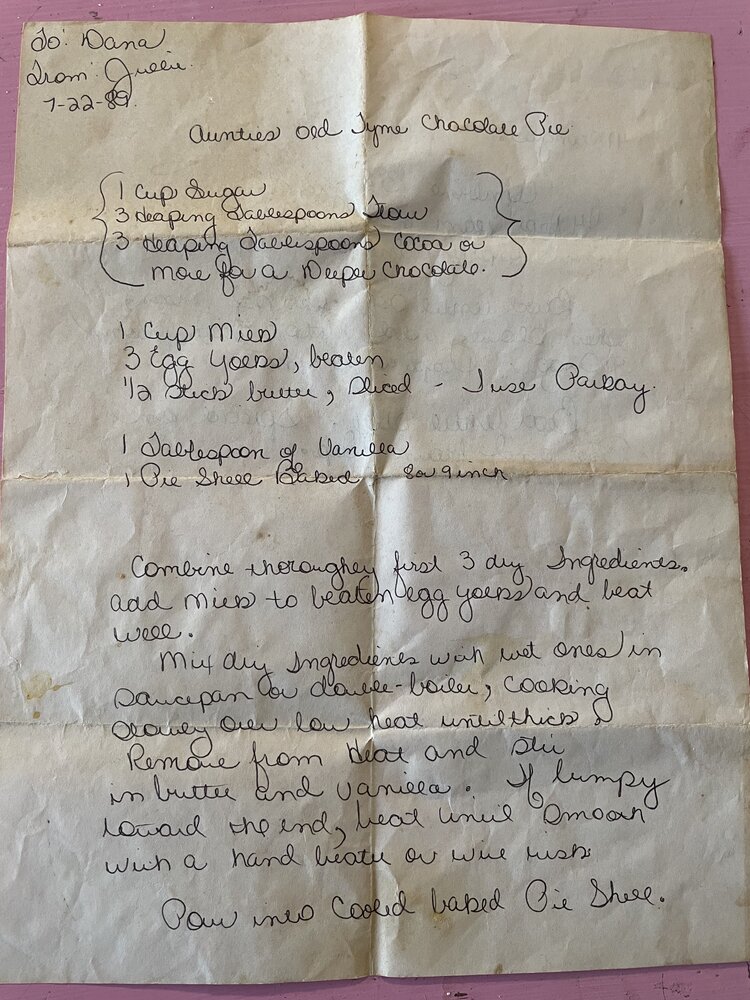 To: Dana
From: Julie.
7-22-89.
Aunties Old Tyme Chocolate Pie
1 Cup Sugar
3 Heaping Tablespoons Flour
3 Heaping Tablespoons Cocoa or
more for a Deeper Chocolate.
1 Cup Milk
3 Egg Yolks, beaten
1/2 Stick butter, Sliced - I use Parkay.
1 Tablespoon of Vanilla
1 Pie Shell Baked 8 or 9 inch
Combine thoroughly first 3 dry Ingredients.
add Milk to beaten egg yolks and beat
well.
Mix dry Ingredients with wet ones in
Saucepan or double-boiler, Cooking
Slowly over low heat until thick.
Remove from Heat and Stir
in butter and Vanilla. If lumpy
toward the end, beat until Smooth
with a hand beater or wire wisk
Pour into Cooled baked Pie Shell.